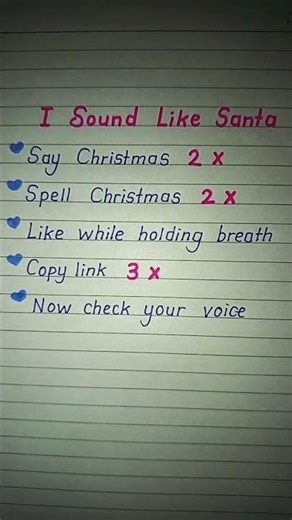 I Sound Like Santa
Say Christmas 2 x
Spell Christmas 2 x
Like while holding breath
Copy link 3 x
Now check your voice